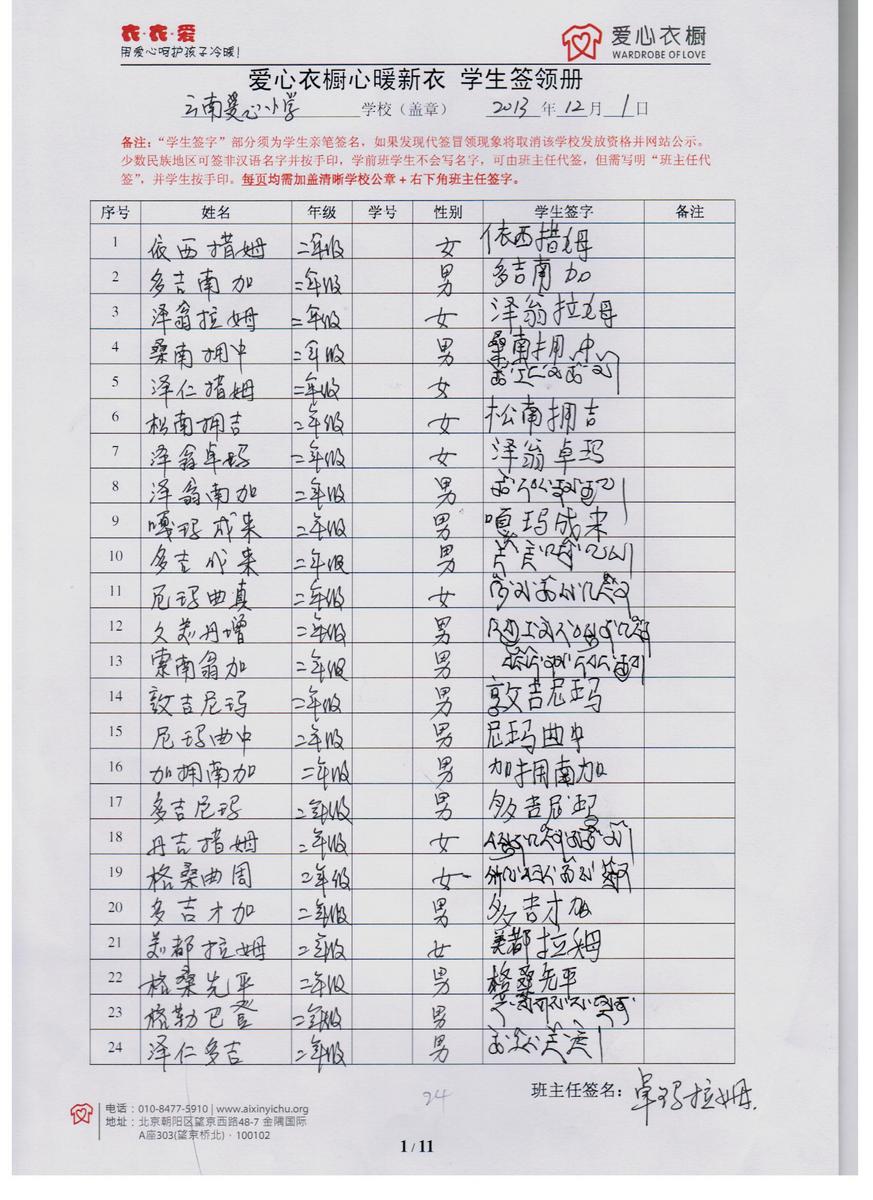 衣·衣·爱
用爱心呵护孩子冷暖!
爱心衣橱
WARDROBE OF LOVE
爱心衣橱心暖新衣 学生签领册
云南爱心小学 学校（盖章） 2013 年 12 月 1 日
备注：“学生签字”部分须为学生亲笔签名，如果发现代签冒领现象将取消该学校发放资格并网站公示。
少数民族地区可签非汉语名字并按手印，学前班学生不会写名字，可由班主任代签，但需写明“班主任代
签”，并学生按手印。每页均需加盖清晰学校公章＋右下角班主任签字。
序号 姓名 年级 学号 性别 学生签字 备注
1 依西措姆 二年级 女 依西措姆
2 多吉南加 二年级 男 多吉南加
3 泽翁拉姆 二年级 女 泽翁拉姆
4 桑南拥中 二年级 男 桑南拥中
5 泽仁措姆 二年级 女
6 松南拥吉 二年级 女 松南拥吉
7 泽翁卓玛 二年级 女 泽翁卓玛
8 泽翁南加 二年级 男
9 嘎玛成来 二年级 男 嘎玛成来
10 多吉成来 二年级 男
11 尼玛曲真 二年级 女
12 文美丹增 二年级 男
13 索南翁加 二年级 男
14 敦吉尼玛 二年级 男 敦吉尼玛
15 尼玛曲中 二年级 男 尼玛曲中
16 加拥南加 二年级 男 加拥南加
17 多吉尼玛 二年级 男 多吉尼玛
18 丹吉措姆 二年级 女
19 格桑曲周 二年级 女
20 多吉才加 二年级 男 多吉才加
21 美都拉姆 二年级 女 美都拉姆
22 格桑先平 二年级 男 格桑先平
23 格勒巴登 二年级 男
24 泽仁多吉 二年级 男
24
班主任签名：卓玛拉姆
电话：010-8477-5910 | www.aixinyichu.org
地址：北京朝阳区望京西路48-7 金隅国际
A座303(望京桥北)·100102
1 / 11